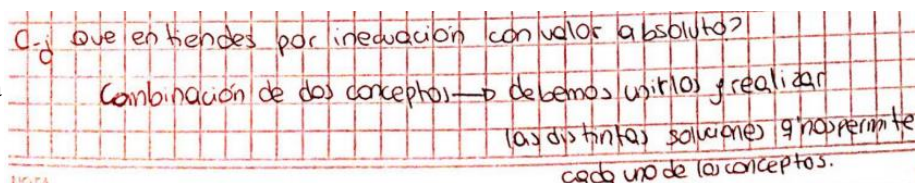 C-¿ Que entiendes por inecuación con valor absoluto?
Combinación de dos conceptos → debemos unirlos y realizar
las distintas soluciones q nos permite
cada uno de los conceptos.